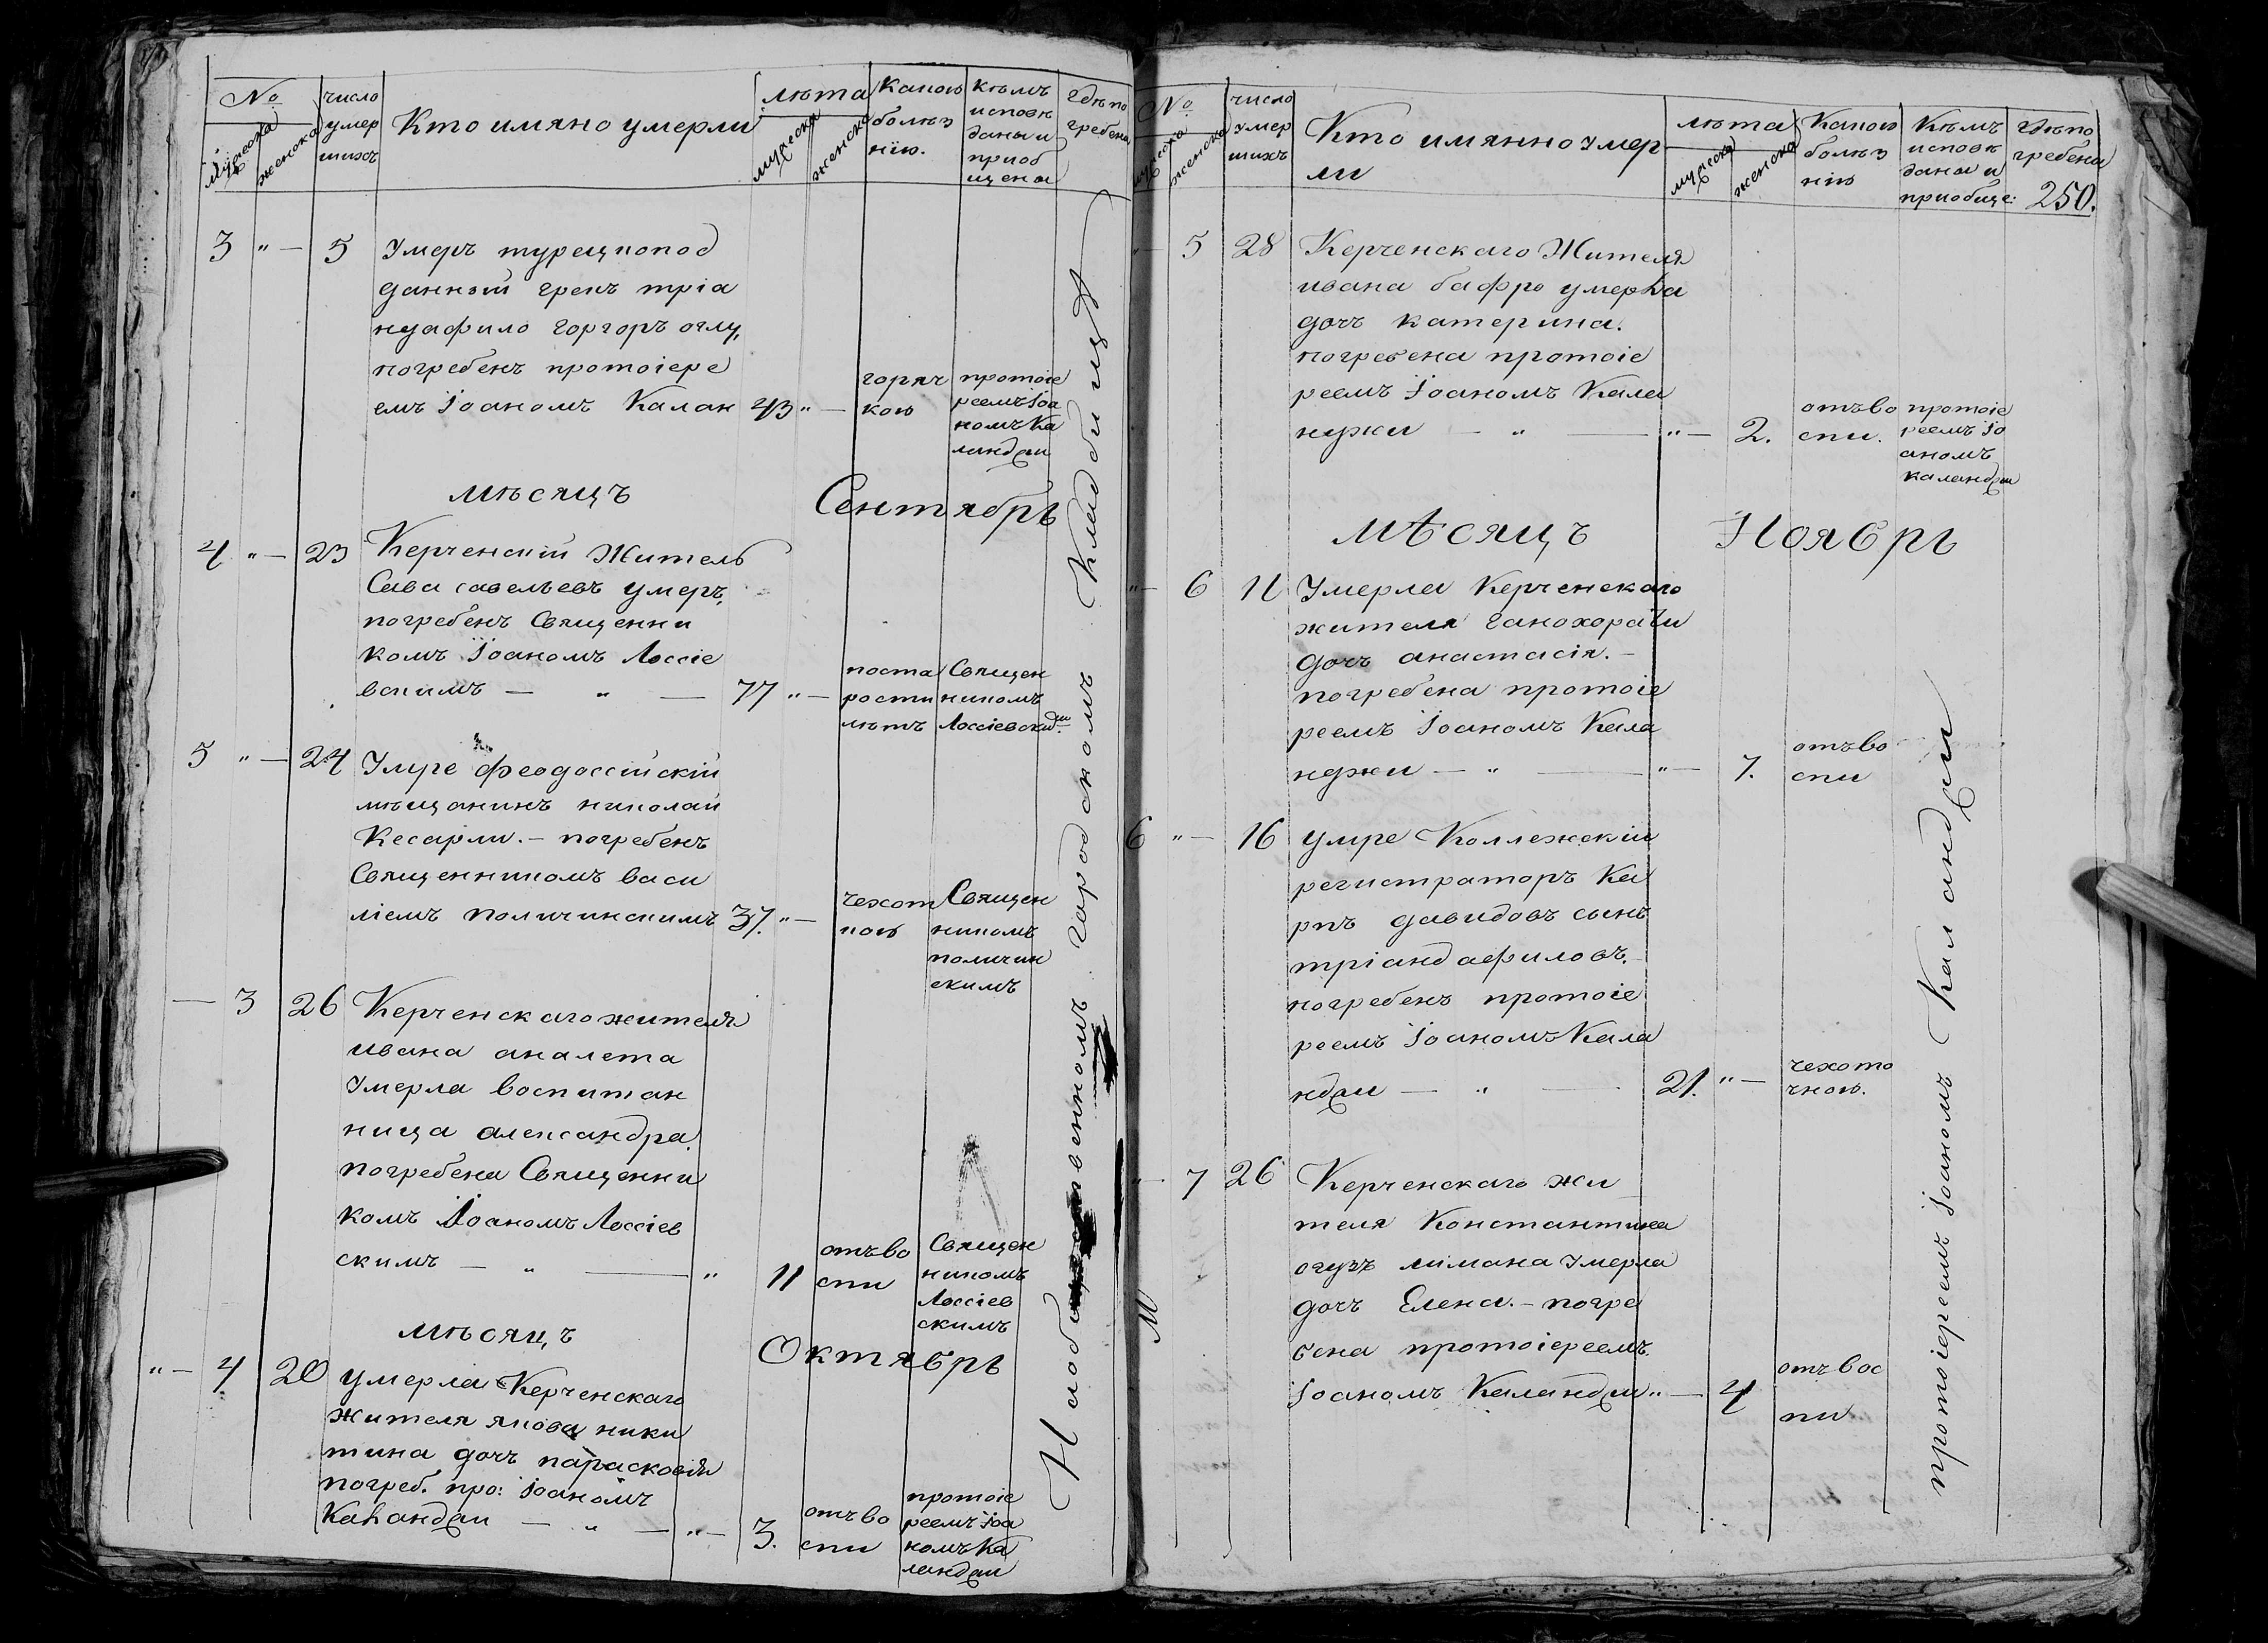 №
мужеска
женска
число
умер
шихъ
Кто имяно умерли
лѣта
мужеска
женска
Какою
болѣз
нію.
Кѣмъ
исповѣ
даны и
приоб
щены
гдѣ по
гребены
3 " — 5 Умеръ турецкопод
данный грекъ тріа
ндафило горгоръ оглу,
погребенъ протоіере
емъ Іоаномъ Калан 43 " —
горяч
кою
протоіе
реемъ Іоа
номъ Ка
ланджи
мѣсяцъ Сентябрь
4 " — 23 Керченскій Житель
Сава савельевъ умеръ,
погребенъ Священни
комъ Іоаномъ Лоссіе
вскимъ — " — 77 " —
поста
рости
лѣтъ
Священ
никомъ
Лоссіевски
5 " — 24 Умре феодоссійскій
мѣщанинъ николай
Кесарли. — погребенъ
Священникомъ васи
ліемъ поличинскимъ 37. " —
чехот
кою
Священ
никомъ
поличин
скимъ
— 3 26 Керченскаго жителя
ивана аналета
Умерла воспитан
ница александра.
погребена Священни
комъ Іоаномъ Лоссіев
скимъ — " — " 11
отъво
спи
Священ
никомъ
Лоссіев
скимъ
мѣсяцъ Октябрь
" — 4 20 умерла Керченскаго
жителя якова ники
тина дочъ парасковія
погреб. про: Іоаномъ
Каланджи — " — " — 3.
отъво
спи
протоіе
реемъ Іоа
номъ Ка
ланджи
городскомъ Кладбищѣ
№
мужеска
женска
число
умер
шихъ
Кто имянно умер
ли
лѣта
мужеска
женска
Какою
болѣз
нію
Кѣмъ
исповѣ
даны и
приобще:
гдѣ по
гребены
250.
" — 5 28 Керченскаго Жителя
ивана бафро умерла
дочъ катерина.
погребена протоіе
реемъ Іоаномъ Кала
нджи — " — " — 2.
отъво
спи.
протоіе
реемъ Іо
аномъ
каланджи
мѣсяцъ Ноябрь
" — 6 11 Умерла Керченскаго
жителя ганохораги
дочъ анастасія. —
погребена протоіе
реемъ Іоаномъ Кала
нджи — " — " — 7.
отъво
спи
6 " — 16 умре Коллежскій
регистраторъ Ка
рпъ давидовъ сынъ
тріандафиловъ. —
погребенъ протоіе
реемъ Іоаномъ Кала
нджи — " — 21. " —
чехото
чною.
" — 7 26 Керченскаго жи
теля Константина
огузъ лимана Умерла
дочъ Елена. — погре
бена протоіереемъ
Іоаномъ Каланджи " — 4
отъ вос
пи
протоіереемъ Іоаномъ Каланджи